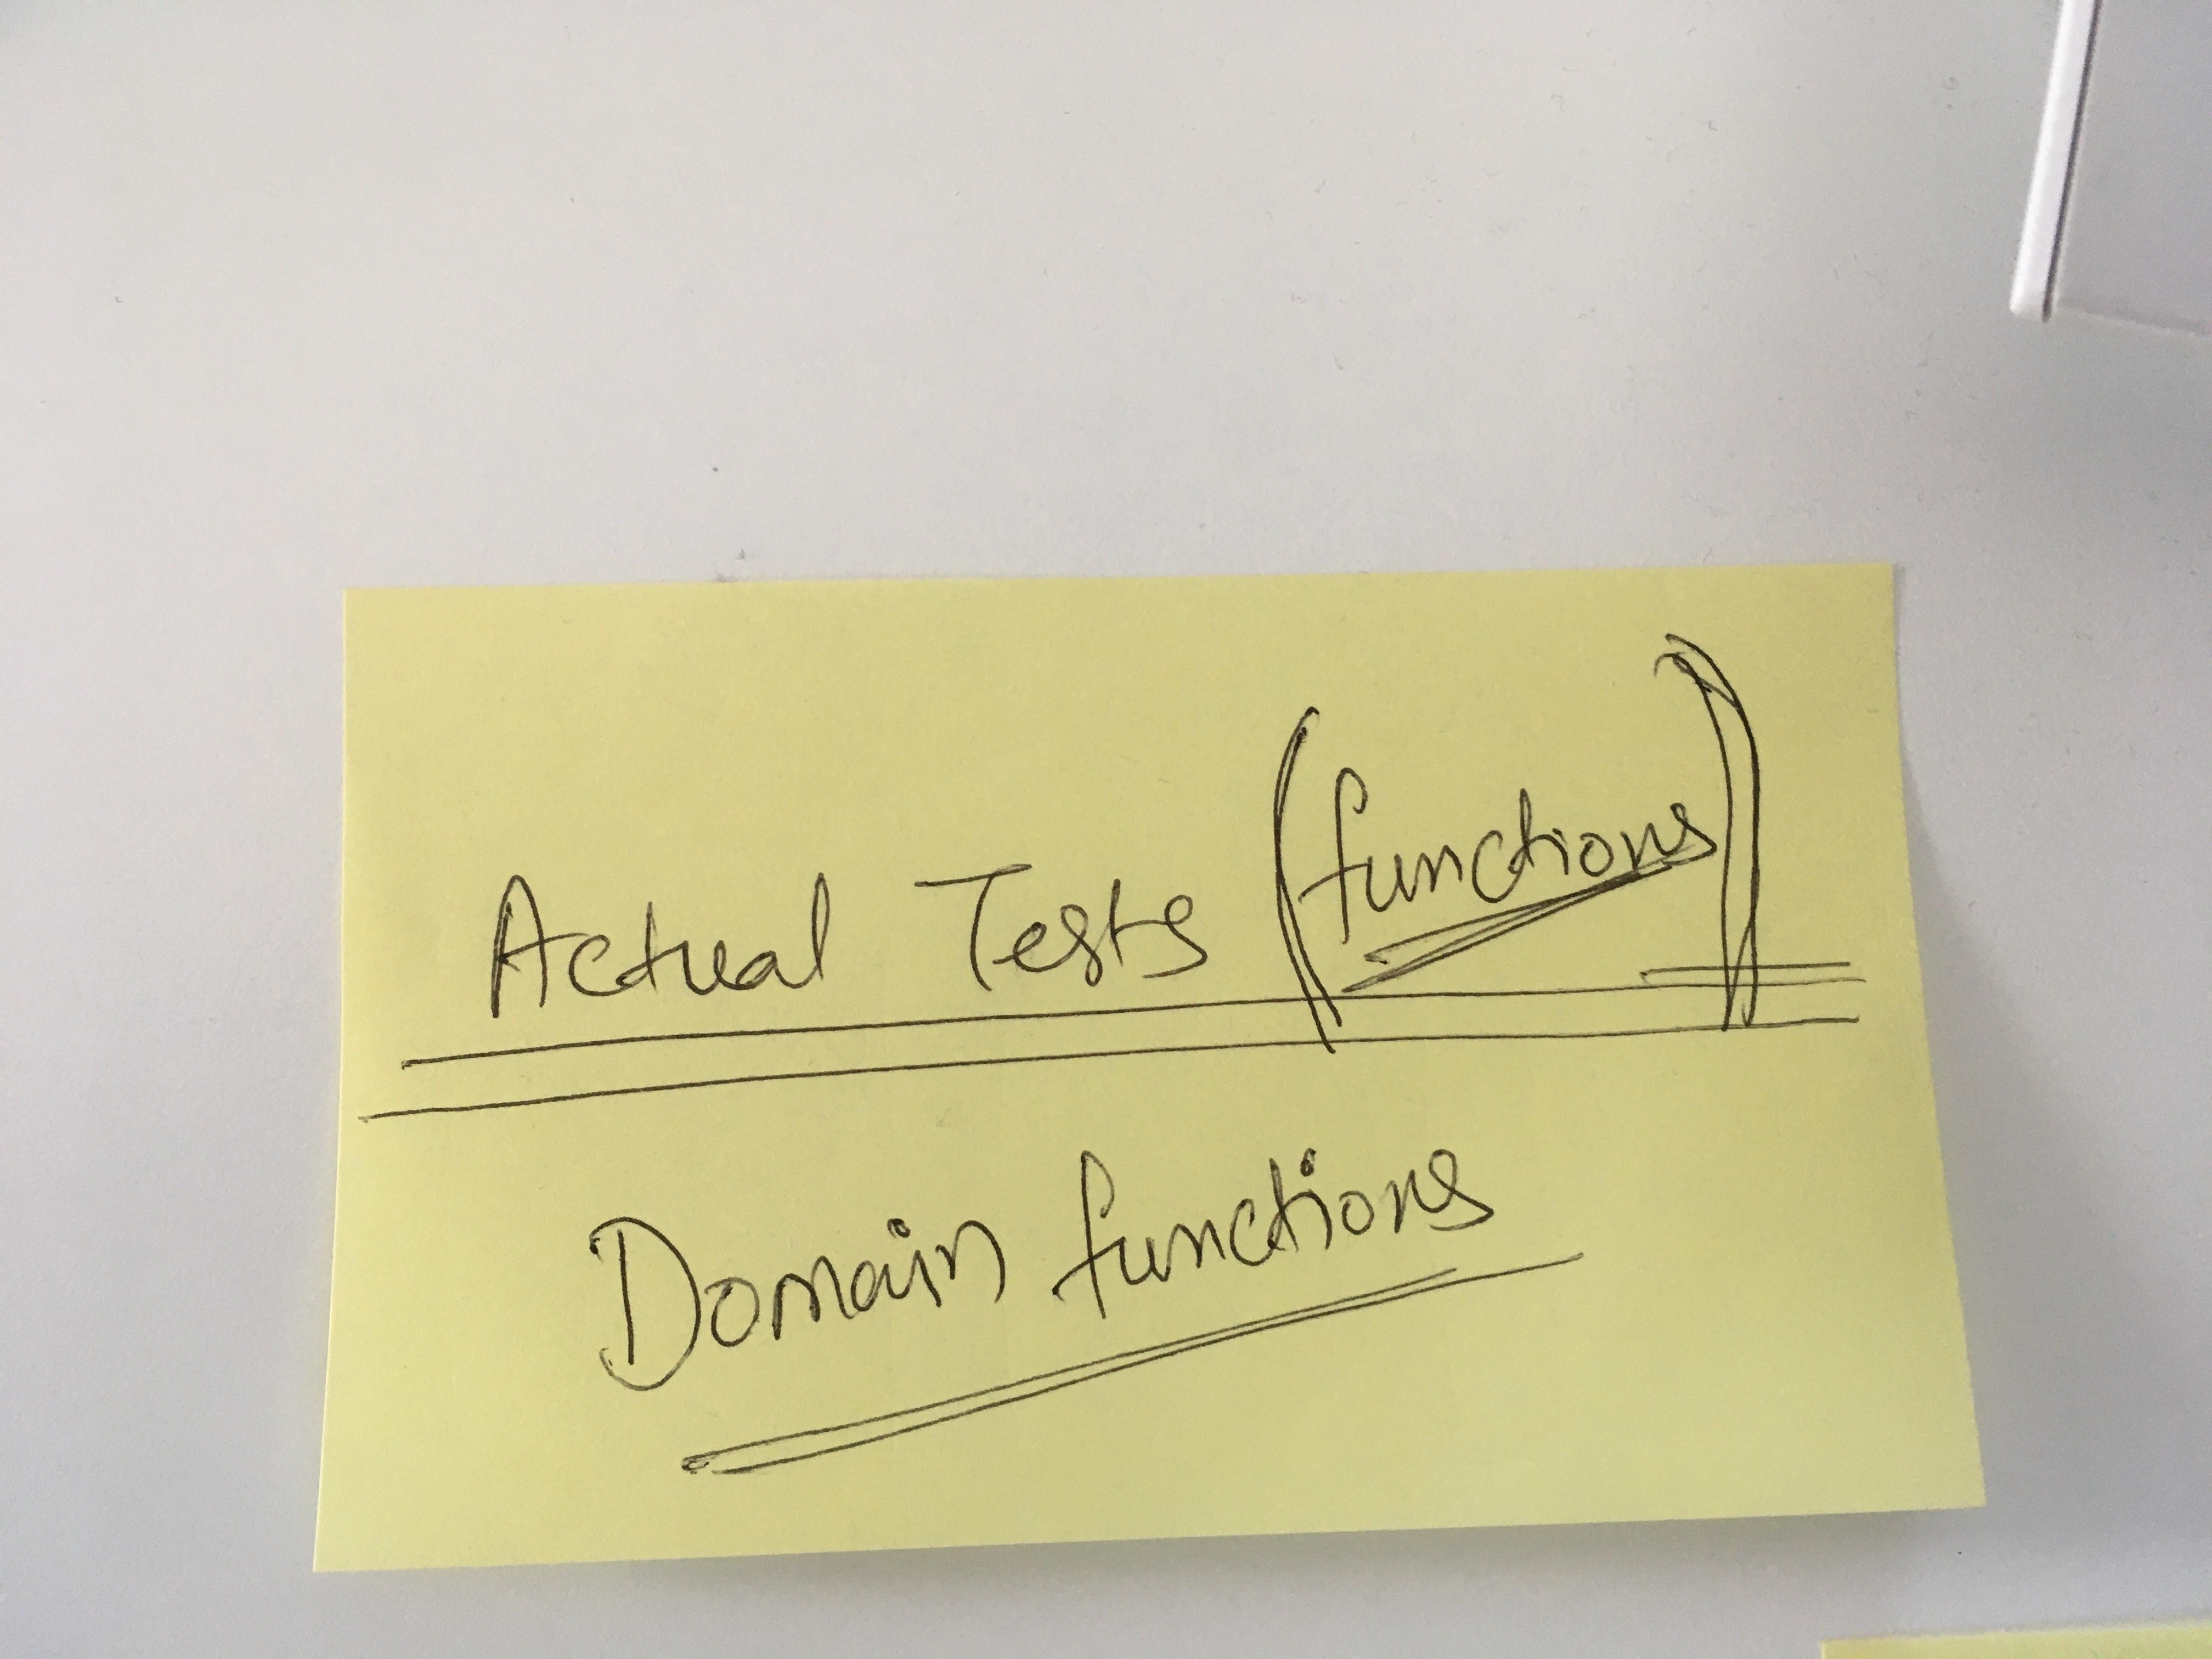 Actual Tests (functions)
Domain functions